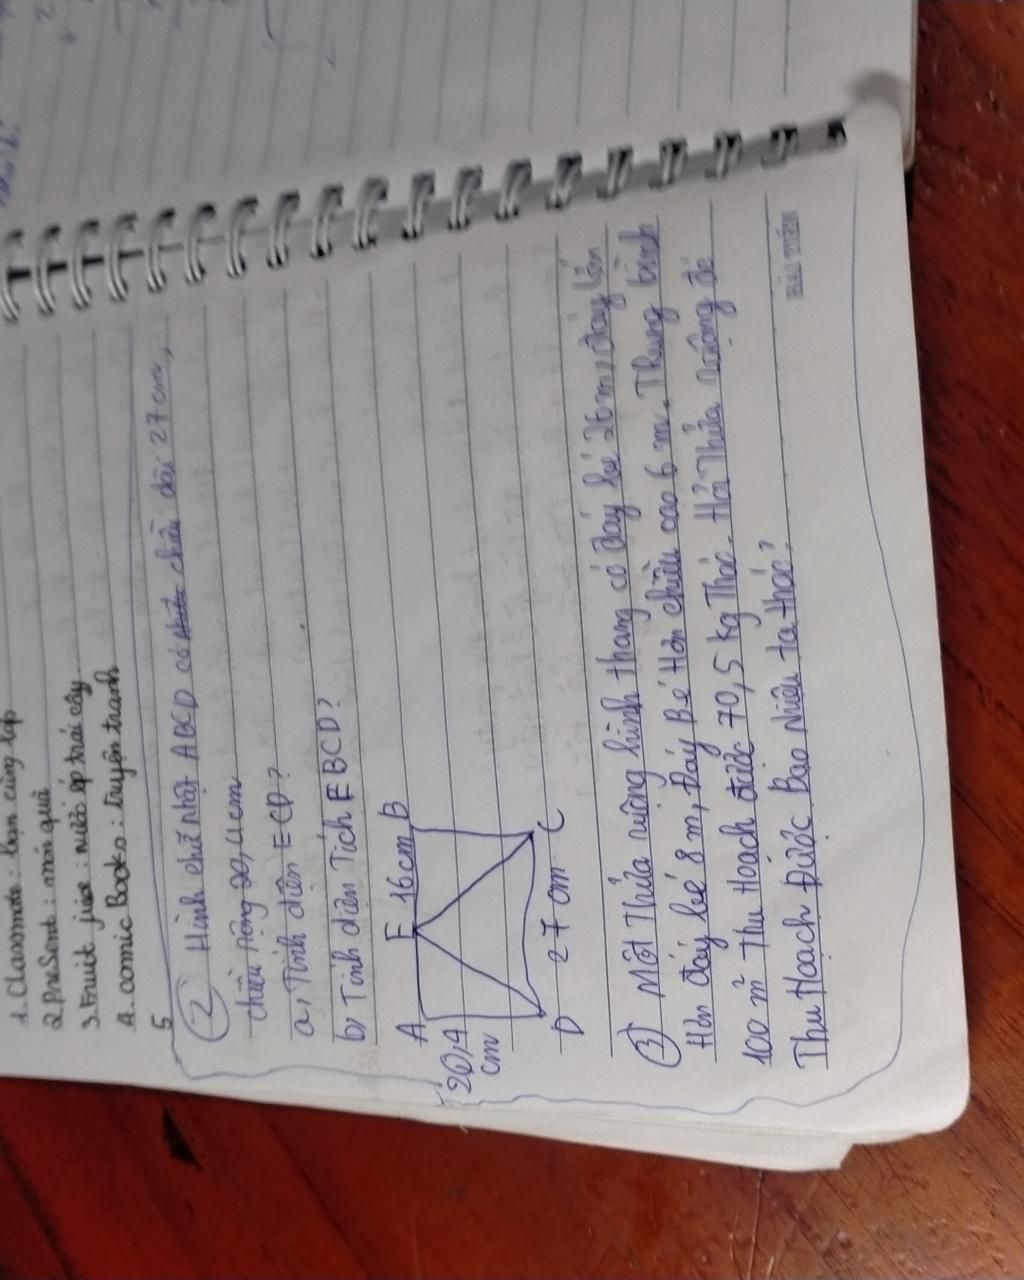 1. Classmate: bạn cùng lớp
2. PreSent: món quà
3. Fruit juce: nước ép trái cây
4. comic Books: truyện tranh
5
② Hình chữ nhật ABCD có chiều dài 27cm,
chiều rộng 20,4cm
a, Tính diên ECD?
b, Tính diên Tích EBCD?
A E 16cm B
20,4
cm
D 27 cm C
③ Một Thửa ruộng hình thang có đáy bé 26m, đáy lớn
Hơn đáy bé 8 m, Đáy Bé Hơn chiều cao 6 m. Thung bình
100 m² Thu Hoạch được 70,5 kg Thóc. Hỏi Thửa ruộng đó
Thu Hoạch Được Bao Nhiêu tạ thóc?